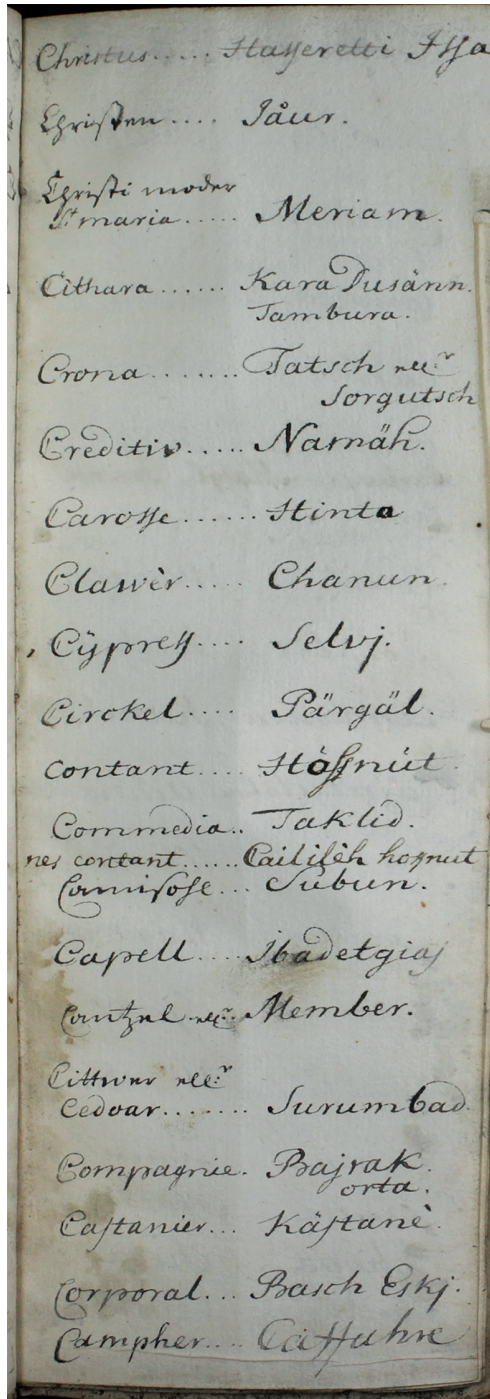 Christus..... Hasseretti Issa
Christen.... Jåur.
Christi moder
St maria..... Meriam.
Cithara...... Kara Dusänn.
Tambura.
Crona....... Tatsch ell:r
Sorgutsch
Creditiv..... Namäh.
Carosse...... Hinto
Clawèr..... Chanun.
Cÿpress.... Selvj.
Circkel.... Pärgäl.
Contant.... Hössnüt.
Commedia.. Taklid.
nes contant...... Cailileh hosnut
Camisole... Subun.
Capell.... Ibadetgiaj
Cantzel ell:r.. Member.
Cittwer ell:r
Cedoar....... Surumbad.
Compagnie. Bajrak.
orta.
Castanier... Kästanè.
Corporal... Basch Eskj.
Campher.... Caffuhre